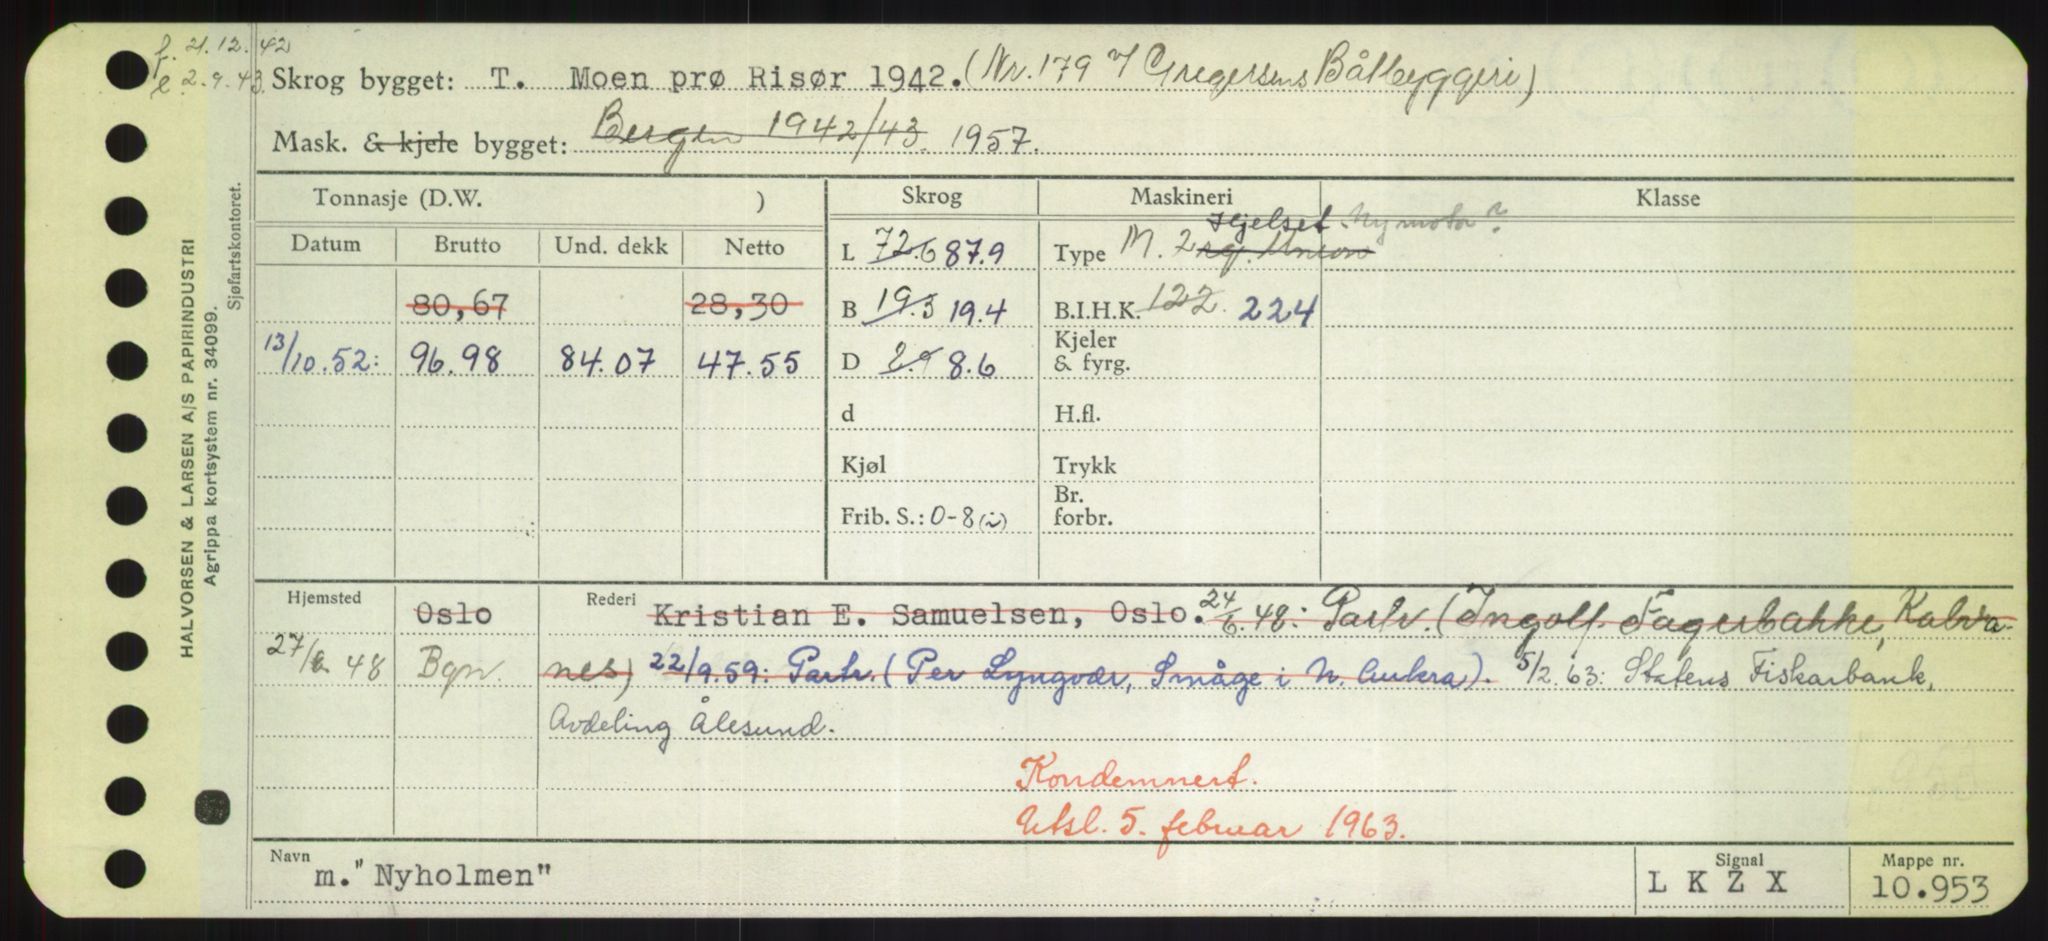 f. 21.12.42
l. 2.9.43.
Skrog bygget: T. Moen prø Risør 1942. (Nr. 179 v/ Gregersens Båtbyggeri)
Mask. & kjele bygget: Bergen 1942/43. 1957.
HALVORSEN & LARSEN A/S PAPIRINDUSTRI
Agrippa kortsystem nr. 34099.
Sjøfartskontoret.
Tonnasje (D.W. ) Skrog Maskineri Klasse
Datum Brutto Und. dekk Netto
L 72.6 87.9 Type M. 2 sq. Union Hjelset Ny motor?
80,67 28,30 B 19.3 19.4 B.I.H.K. 122 224
13/10.52: 96.98 84.07 47.55 D 8.6 Kjeler & fyrg.
d H.fl.
Kjøl Trykk
Frib. S.: 0-8 (i) Br. forbr.
Hjemsted Oslo Rederi Kristian E. Samuelsen, Oslo. 24/6.48: Partr. (Ingolf Fagerbakke, Kalvå-
27/ 48 Bgn. nes) 22/9.59: Partr. (Per Lyngvær, Småge i N. Aukra). 5/2.63: Statens Fiskarbank,
Avdeling Ålesund.
Kondemnert.
Utsl. 5. februar 1963.
Navn m. "Nyholmen" Signal L K Z X Mappe nr. 10.953